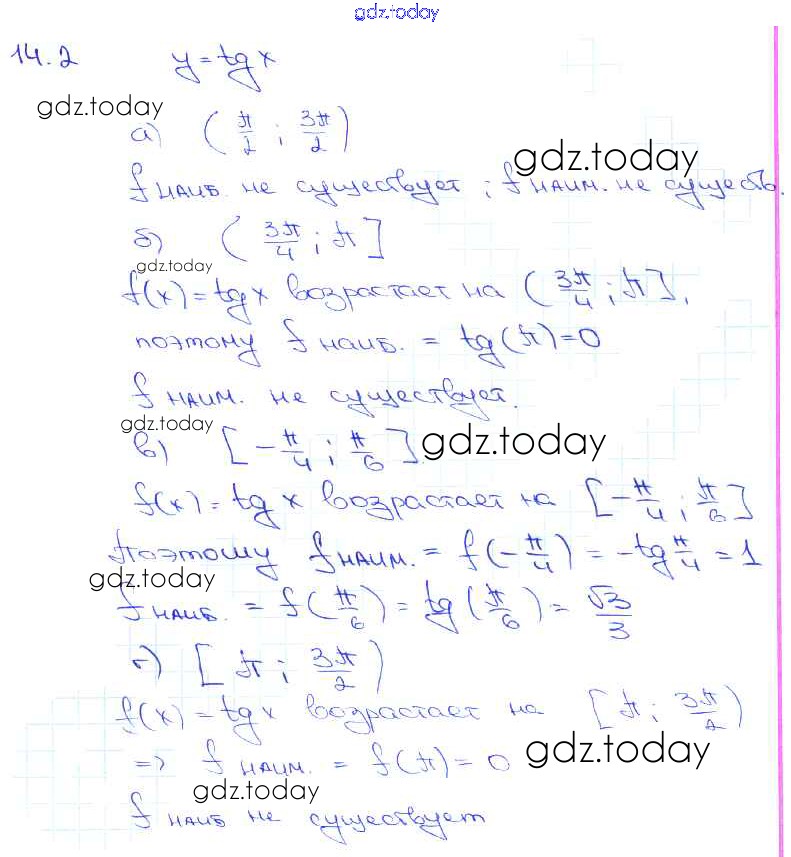 gdz.today
14.2 y = tg x
gdz.today
а) (π/2 ; 3π/2)
gdz.today
f наиб. не существует ; f наим. не существ.
б) (3π/4 ; π]
gdz.today
f(x) = tg x возрастает на (3π/4 ; π],
поэтому f наиб. = tg(π) = 0
f наим. не существует.
gdz.today
в) [-π/4 ; π/6].
gdz.today
f(x) = tg x возрастает на [-π/4 ; π/6]
Поэтому f наим. = f(-π/4) = -tg π/4 = 1
gdz.today
f наиб. = f(π/6) = tg(π/6) = √3/3
г) [π ; 3π/2)
f(x) = tg x возрастает на [π ; 3π/2)
=> f наим. = f(π) = 0
gdz.today
gdz.today
f наиб не существует